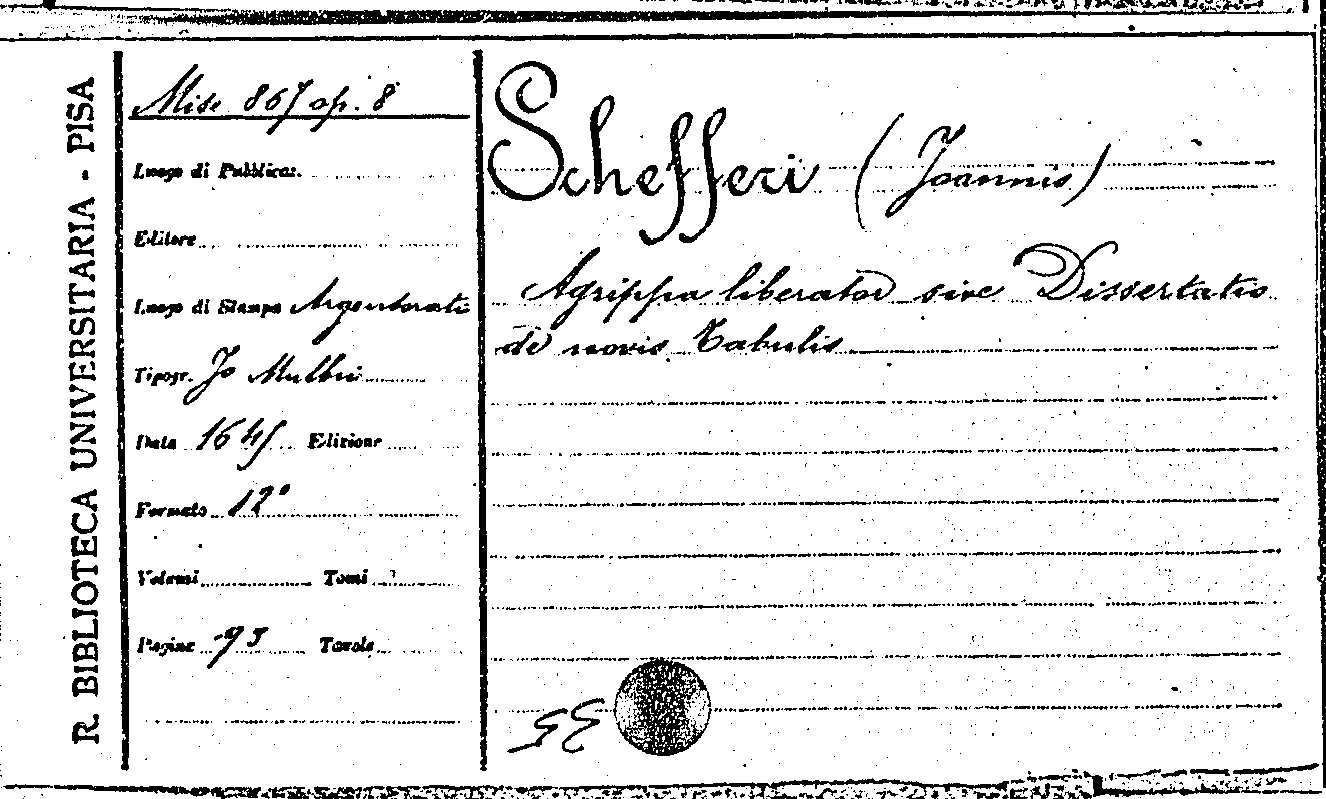 R. BIBLIOTECA UNIVERSITARIA - PISA
Misc 867 op. 8
Luogo di Pubblicaz.
Editore
Luogo di Stampa Argentorati
Tipogr. Jo Mulbii
Data 1645 Edizione
Formato 12°
Volumi Tomi
Pagine 93 Tavole
Schefferi (Joannis)
Agrippa liberator sive Dissertatio
de novis Tabulis